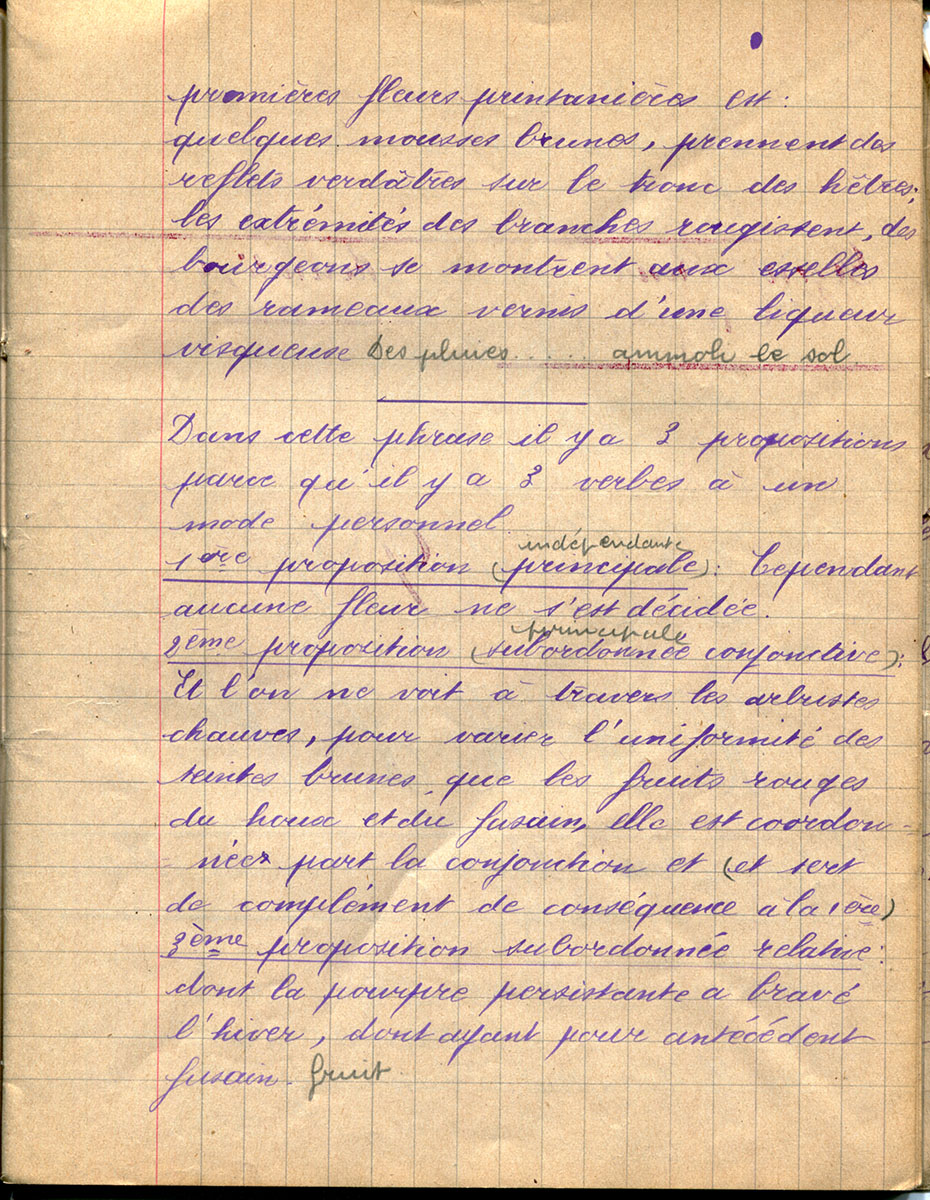 premières fleurs printanières est :
quelques mousses brunes, prennent des
reflets verdâtres sur le tronc des hêtres;
les extrémités des branches rougissent, des
bourgeons se montrent aux esselles
des rameaux vernis d'une liqueur
visqueuse Des pluies ..... ammoli le sol
Dans cette phrase il y a 3 propositions
parce qu'il y a 3 verbes à un
mode personnel
indépendante
1ère proposition (principale) : Cependant
aucune fleur ne s'est décidée.
principale
2ème proposition (subordonnée conjonctive) :
Et l'on ne voit à travers les arbustes
chauves, pour varier l'uniformité des
teintes brunes que les fruits rouges
du houx et du fusain, elle est coordon-
-née part la conjonction et (et sert
de complément de conséquence a la 1ère)
3ème proposition subordonnée relative :
dont la pourpre persistante a bravé
l'hiver, dont ayant pour antécédent
fusain. fruit